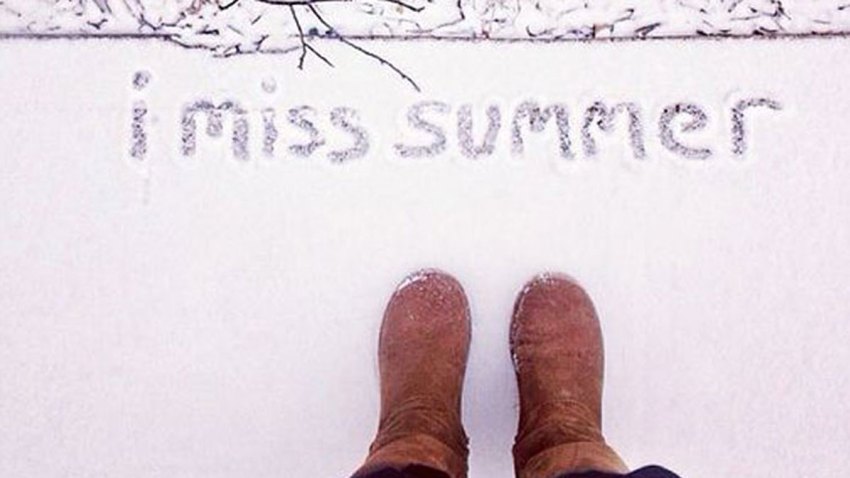 i miss summer